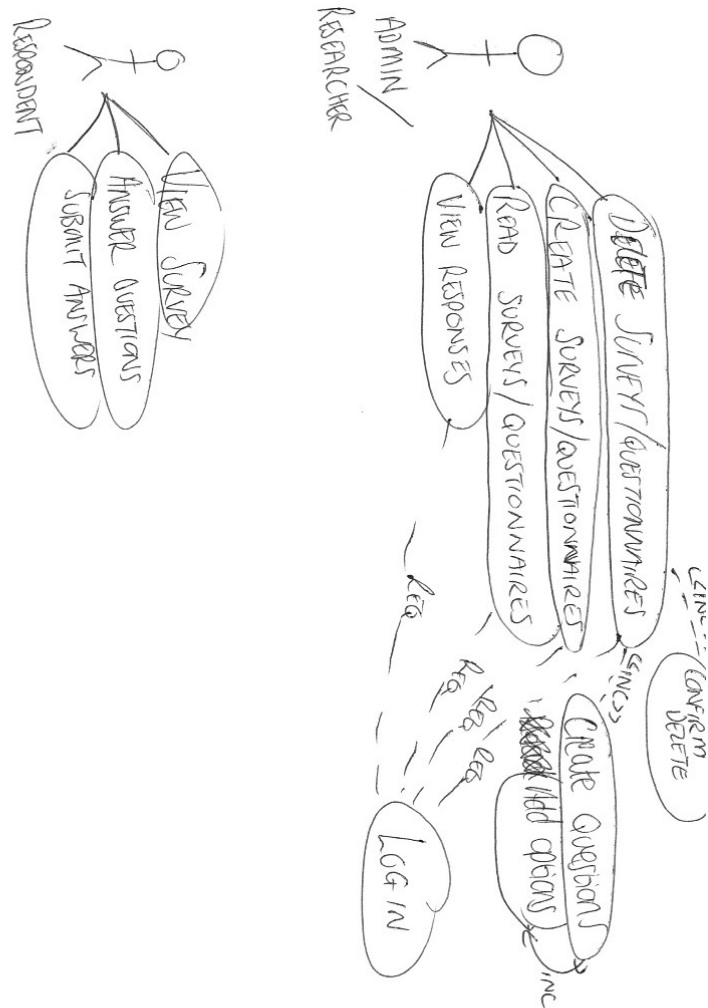 ADMIN /
RESEARCHER
DELETE SURVEYS/QUESTIONNAIRES
CREATE SURVEYS/QUESTIONNAIRES
READ SURVEYS/QUESTIONNAIRES
VIEW RESPONSES
<<INC>>
CONFIRM
DELETE
<<INC>>
Create Questions
Add options
INC
REQ
REQ
REQ
REQ
LOGIN
RESPONDENT
VIEW SURVEY
ANSWER QUESTIONS
SUBMIT ANSWERS